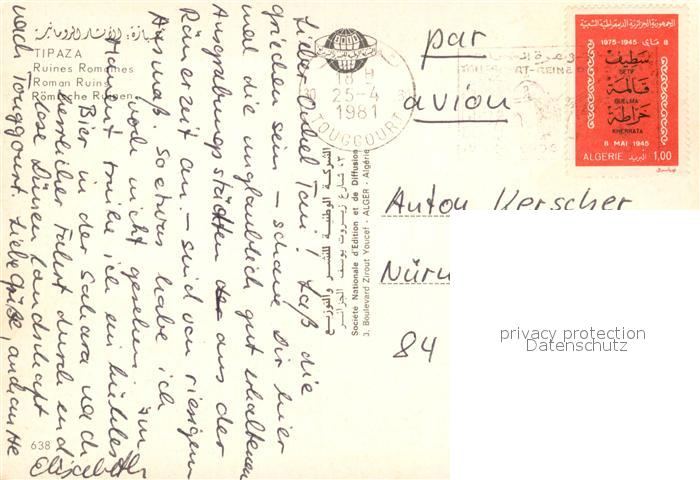 تيبازة: الآثار الرومانية
TIPAZA
Ruines Romaines
Roman Ruins
Römische Ruinen
Lieber Onkel Toni! Laß die
griechen sein – schaue Dir hier
mal die unglaublich gut erhaltenen
Ausgrabungsstädten aus der
Römerzeit an. – sind von riesigem
Ausmaß. So etwas habe ich
noch nicht gesehen. Im
Moment trinke ich ein kühles
Bier in der Sahara nach
herrlicher Fahrt durch end
lose Dünenlandschaft
nach Touggourt. Liebe Grüße, auch an
Elisabeth
638
الشركة الوطنية للنشر والتوزيع
3، شارع زيروت يوسف الجزائر
Société Nationale d'Edition et de Diffusion
3. Boulevard Zirout Youcef - ALGER - Algérie
18 H
25-4
1981
TOUGGOURT
par
avion
الجمهورية الجزائرية الديمقراطية الشعبية
1975-1945 8 ماي
سطيف
SETIF
قالمة
GUELMA
خراطة
KHERRATA
8 MAI 1945
ALGERIE البريد 1,00
Anton Kerscher
Nürn
84
privacy protection
Datenschutz